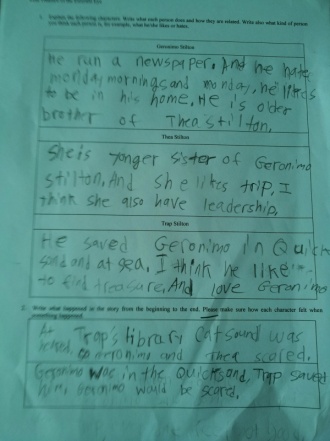 1. Explain the following characters. Write what each person does and how they are related. Write also what kind of person
you think each person is, for example, what he/she likes or hates.
Geronimo Stilton
He run a newspaper. And he hate
monday mornings and monday, he likes
to be in his home. He is older
brother of Thea stilton.
Thea Stilton
She is yonger sister of Geronimo
stilton. And she likes trip. I
think she also have leadership.
Trap Stilton
He saved Geronimo in Quick
sand and at sea. I think he like
to find treasure. And love Geronimo
2. Write what happened in the story from the beginning to the end. Please make sure how each character felt when
something happened.
At Trap's library Cat sound was
Geronimo and Thea scared.
Geronimo was in the Quicksand, Trap saved
him. Geronimo would be scared.